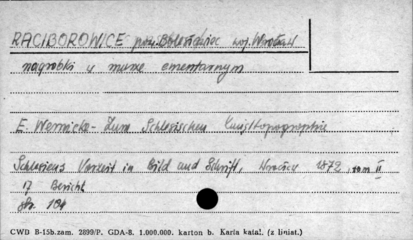 RACIBOROWICE pow. Bolesławiec woj. Wrocław
nagrobki w murze cmentarnym
E. Wernicke - Zur Schlesischen Kunsttopographie
Schlesiens Vorzeit in Bild und Schrift, Wrocław 1872, tom II
17 Bericht
str. 194
CWD B-15b.zam. 2899/P. GDA-8. 1.000.000. karton b. Karta katal. (z liniat.)